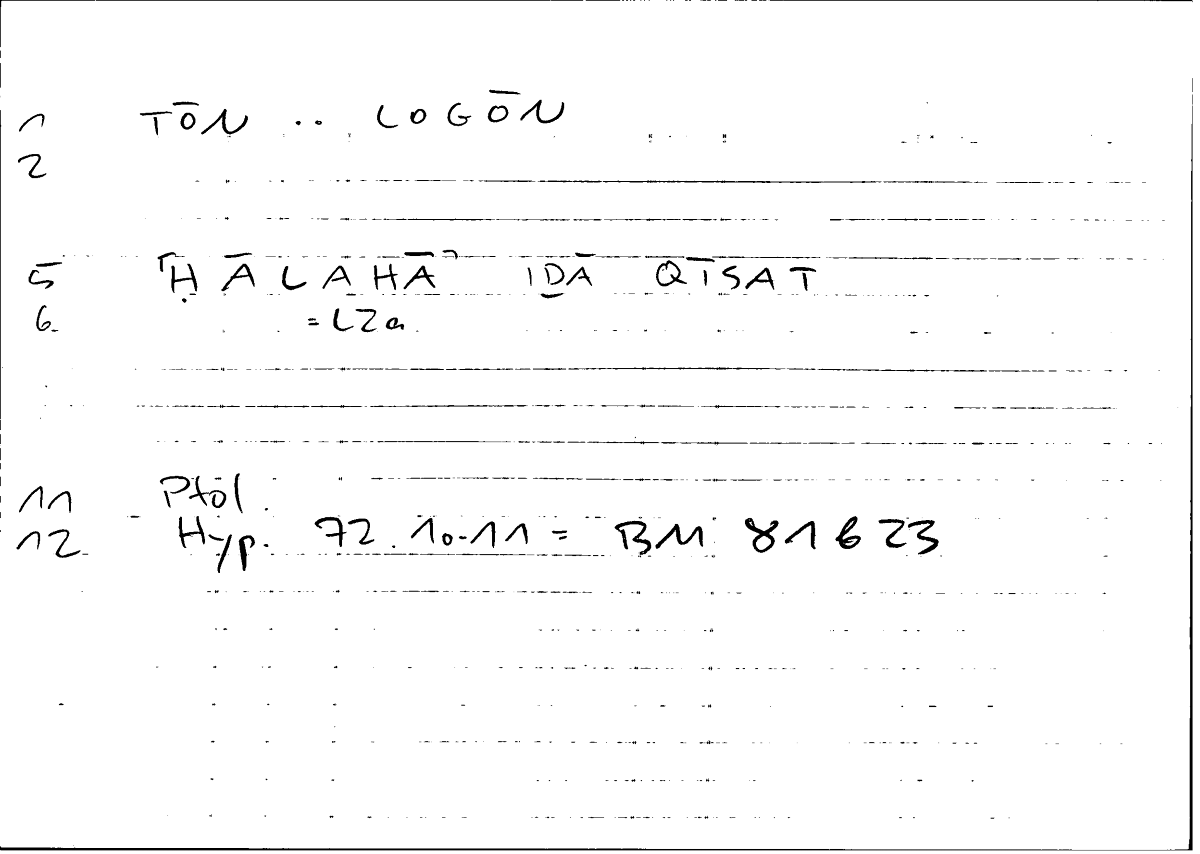 1 TŌN .. LOGŌN
2
5 ⸢Ḥ ĀLAHĀ⸣ IḎĀ QĪSAT
6. = LZa.
11 Ptol.
12. Hyp. 72.10-11 = BM 81623